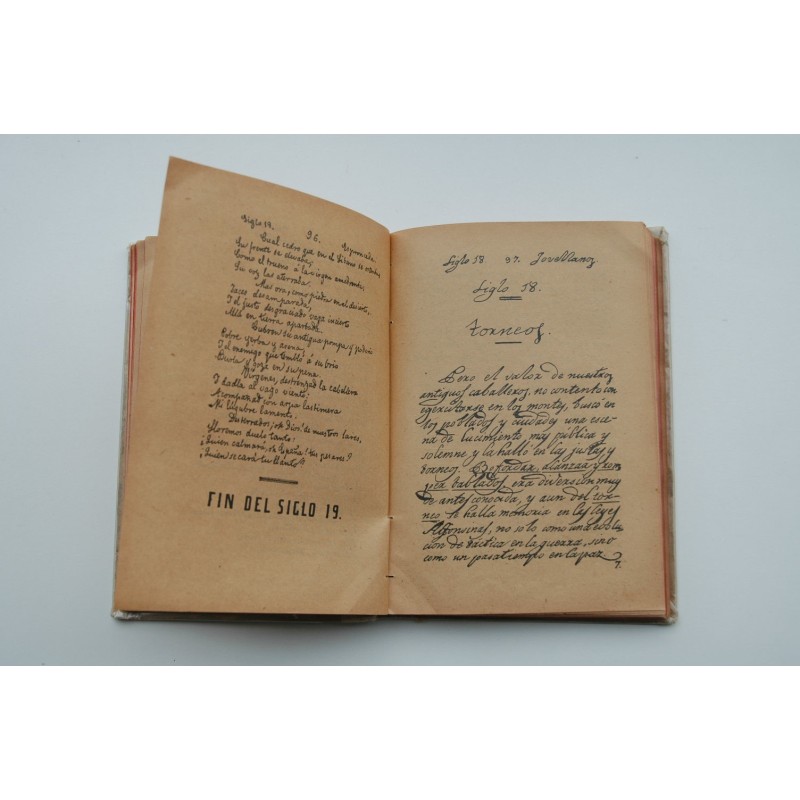 Siglo 19. 96. Espronceda.
Cual cedro que en el Líbano se
Su frente se elevaba;
Como el trueno á la virgen amedrenta,
Su voz las aterraba.
Mas ora, como piedra en el desierto,
Yaces desamparada,
Y el justo desgraciado vaga incierto
Allá en tierra apartada.
Cubren su antigua pompa y poderío
Pobre yerba y arena,
Y el enemigo que tembló á su brio
Burla y goza en su pena.
Vírgenes, destrenzad la cabellera
Y dadla al vago viento;
Acompañad con arpa lastimera
Mi lúgubre lamento.
Desterrados; oh Dios! de nuestros lares,
Lloremos duelo tanto:
¿Quién calmará, oh España! tus pesares?
¿Quién secará tu llanto?
FIN DEL SIGLO 19.
Siglo 18 97. Jovellanos
Siglo 18.
Torneos.
Pero el valor de nuestros
antiguos caballeros, no contento con
egercitarse en los montes, buscó en
los poblados y ciudades una esce-
na de lucimiento mas pública y
solemne y la halló en las justas y
torneos. Bofordar, alanzar y rom-
per tablados, era diversion muy
de antes conocida, y aun del tor-
neo se halla memoria en las leyes
Alfonsinas, no solo como una evolu-
cion de táctica en la guerra, sino
como un pasatiempo en la paz.
7.